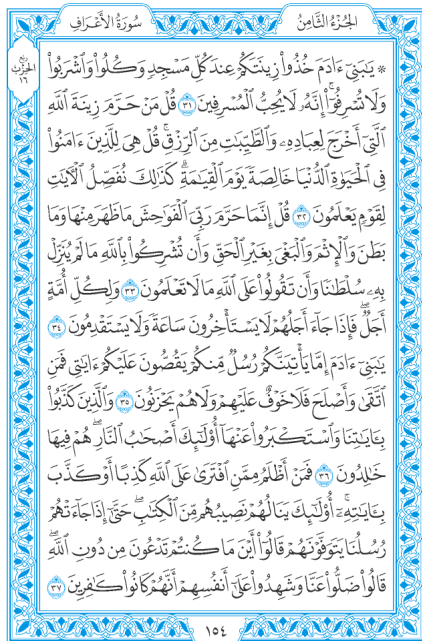 سُورَةُ الأَعْرَافِ
الجُزْءُ الثَّامِنُ
ربع
الحزب
١٦
۞ يَٰبَنِيٓ ءَادَمَ خُذُواْ زِينَتَكُمۡ عِندَ كُلِّ مَسۡجِدٖ وَكُلُواْ وَٱشۡرَبُواْ
وَلَا تُسۡرِفُوٓاْۚ إِنَّهُۥ لَا يُحِبُّ ٱلۡمُسۡرِفِينَ ٣١ قُلۡ مَنۡ حَرَّمَ زِينَةَ ٱللَّهِ
ٱلَّتِيٓ أَخۡرَجَ لِعِبَادِهِۦ وَٱلطَّيِّبَٰتِ مِنَ ٱلرِّزۡقِۚ قُلۡ هِيَ لِلَّذِينَ ءَامَنُواْ
فِي ٱلۡحَيَوٰةِ ٱلدُّنۡيَا خَالِصَةٗ يَوۡمَ ٱلۡقِيَٰمَةِۗ كَذَٰلِكَ نُفَصِّلُ ٱلۡأٓيَٰتِ
لِقَوۡمٖ يَعۡلَمُونَ ٣٢ قُلۡ إِنَّمَا حَرَّمَ رَبِّيَ ٱلۡفَوَٰحِشَ مَا ظَهَرَ مِنۡهَا وَمَا
بَطَنَ وَٱلۡإِثۡمَ وَٱلۡبَغۡيَ بِغَيۡرِ ٱلۡحَقِّ وَأَن تُشۡرِكُواْ بِٱللَّهِ مَا لَمۡ يُنَزِّلۡ
بِهِۦ سُلۡطَٰنٗا وَأَن تَقُولُواْ عَلَى ٱللَّهِ مَا لَا تَعۡلَمُونَ ٣٣ وَلِكُلِّ أُمَّةٍ
أَجَلٞۖ فَإِذَا جَآءَ أَجَلُهُمۡ لَا يَسۡتَأۡخِرُونَ سَاعَةٗ وَلَا يَسۡتَقۡدِمُونَ ٣٤
يَٰبَنِيٓ ءَادَمَ إِمَّا يَأۡتِيَنَّكُمۡ رُسُلٞ مِّنكُمۡ يَقُصُّونَ عَلَيۡكُمۡ ءَايَٰتِي فَمَنِ
ٱتَّقَىٰ وَأَصۡلَحَ فَلَا خَوۡفٌ عَلَيۡهِمۡ وَلَا هُمۡ يَحۡزَنُونَ ٣٥ وَٱلَّذِينَ كَذَّبُواْ
بِـَٔايَٰتِنَا وَٱسۡتَكۡبَرُواْ عَنۡهَآ أُوْلَٰٓئِكَ أَصۡحَٰبُ ٱلنَّارِۖ هُمۡ فِيهَا
خَٰلِدُونَ ٣٦ فَمَنۡ أَظۡلَمُ مِمَّنِ ٱفۡتَرَىٰ عَلَى ٱللَّهِ كَذِبًا أَوۡ كَذَّبَ
بِـَٔايَٰتِهِۦٓۚ أُوْلَٰٓئِكَ يَنَالُهُمۡ نَصِيبُهُم مِّنَ ٱلۡكِتَٰبِۖ حَتَّىٰٓ إِذَا جَآءَتۡهُمۡ
رُسُلُنَا يَتَوَفَّوۡنَهُمۡ قَالُوٓاْ أَيۡنَ مَا كُنتُمۡ تَدۡعُونَ مِن دُونِ ٱللَّهِۖ
قَالُواْ ضَلُّواْ عَنَّا وَشَهِدُواْ عَلَىٰٓ أَنفُسِهِمۡ أَنَّهُمۡ كَانُواْ كَٰفِرِينَ ٣٧
١٥٤